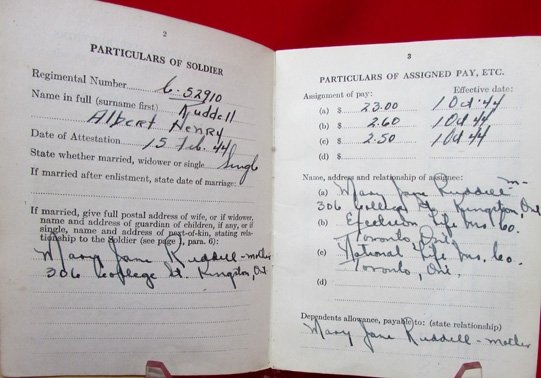 2
PARTICULARS OF SOLDIER
Regimental Number C-52910
Name in full (surname first) Ruddell
Albert Henry
Date of Attestation 15 Feb. 44
State whether married, widower or single Single
If married after enlistment, state date of marriage:
If married, give full postal address of wife, or if widower,
name and address of guardian of children, if any, or if
single, name and address of next-of-kin, stating rela-
tionship to the Soldier (see page 1, para. 6):
Mary Jane Ruddell - mother
306 College St. Kingston, Ont
3
PARTICULARS OF ASSIGNED PAY, ETC.
Assignment of pay: Effective date:
(a) $ 23.00 1 Oct '44
(b) $ 2.60 1 Oct 44
(c) $ 2.50 1 Oct 44
(d) $
Name, address and relationship of assignee:
(a) Mary Jane Ruddell - m-
306 College St. Kingston, Ont
(b) Excelsior Life Ins. Co.
Toronto, Ont.
(c) National Life Ins. Co.
Toronto, Ont.
(d)
Dependents allowance, payable to: (state relationship)
Mary Jane Ruddell - mother